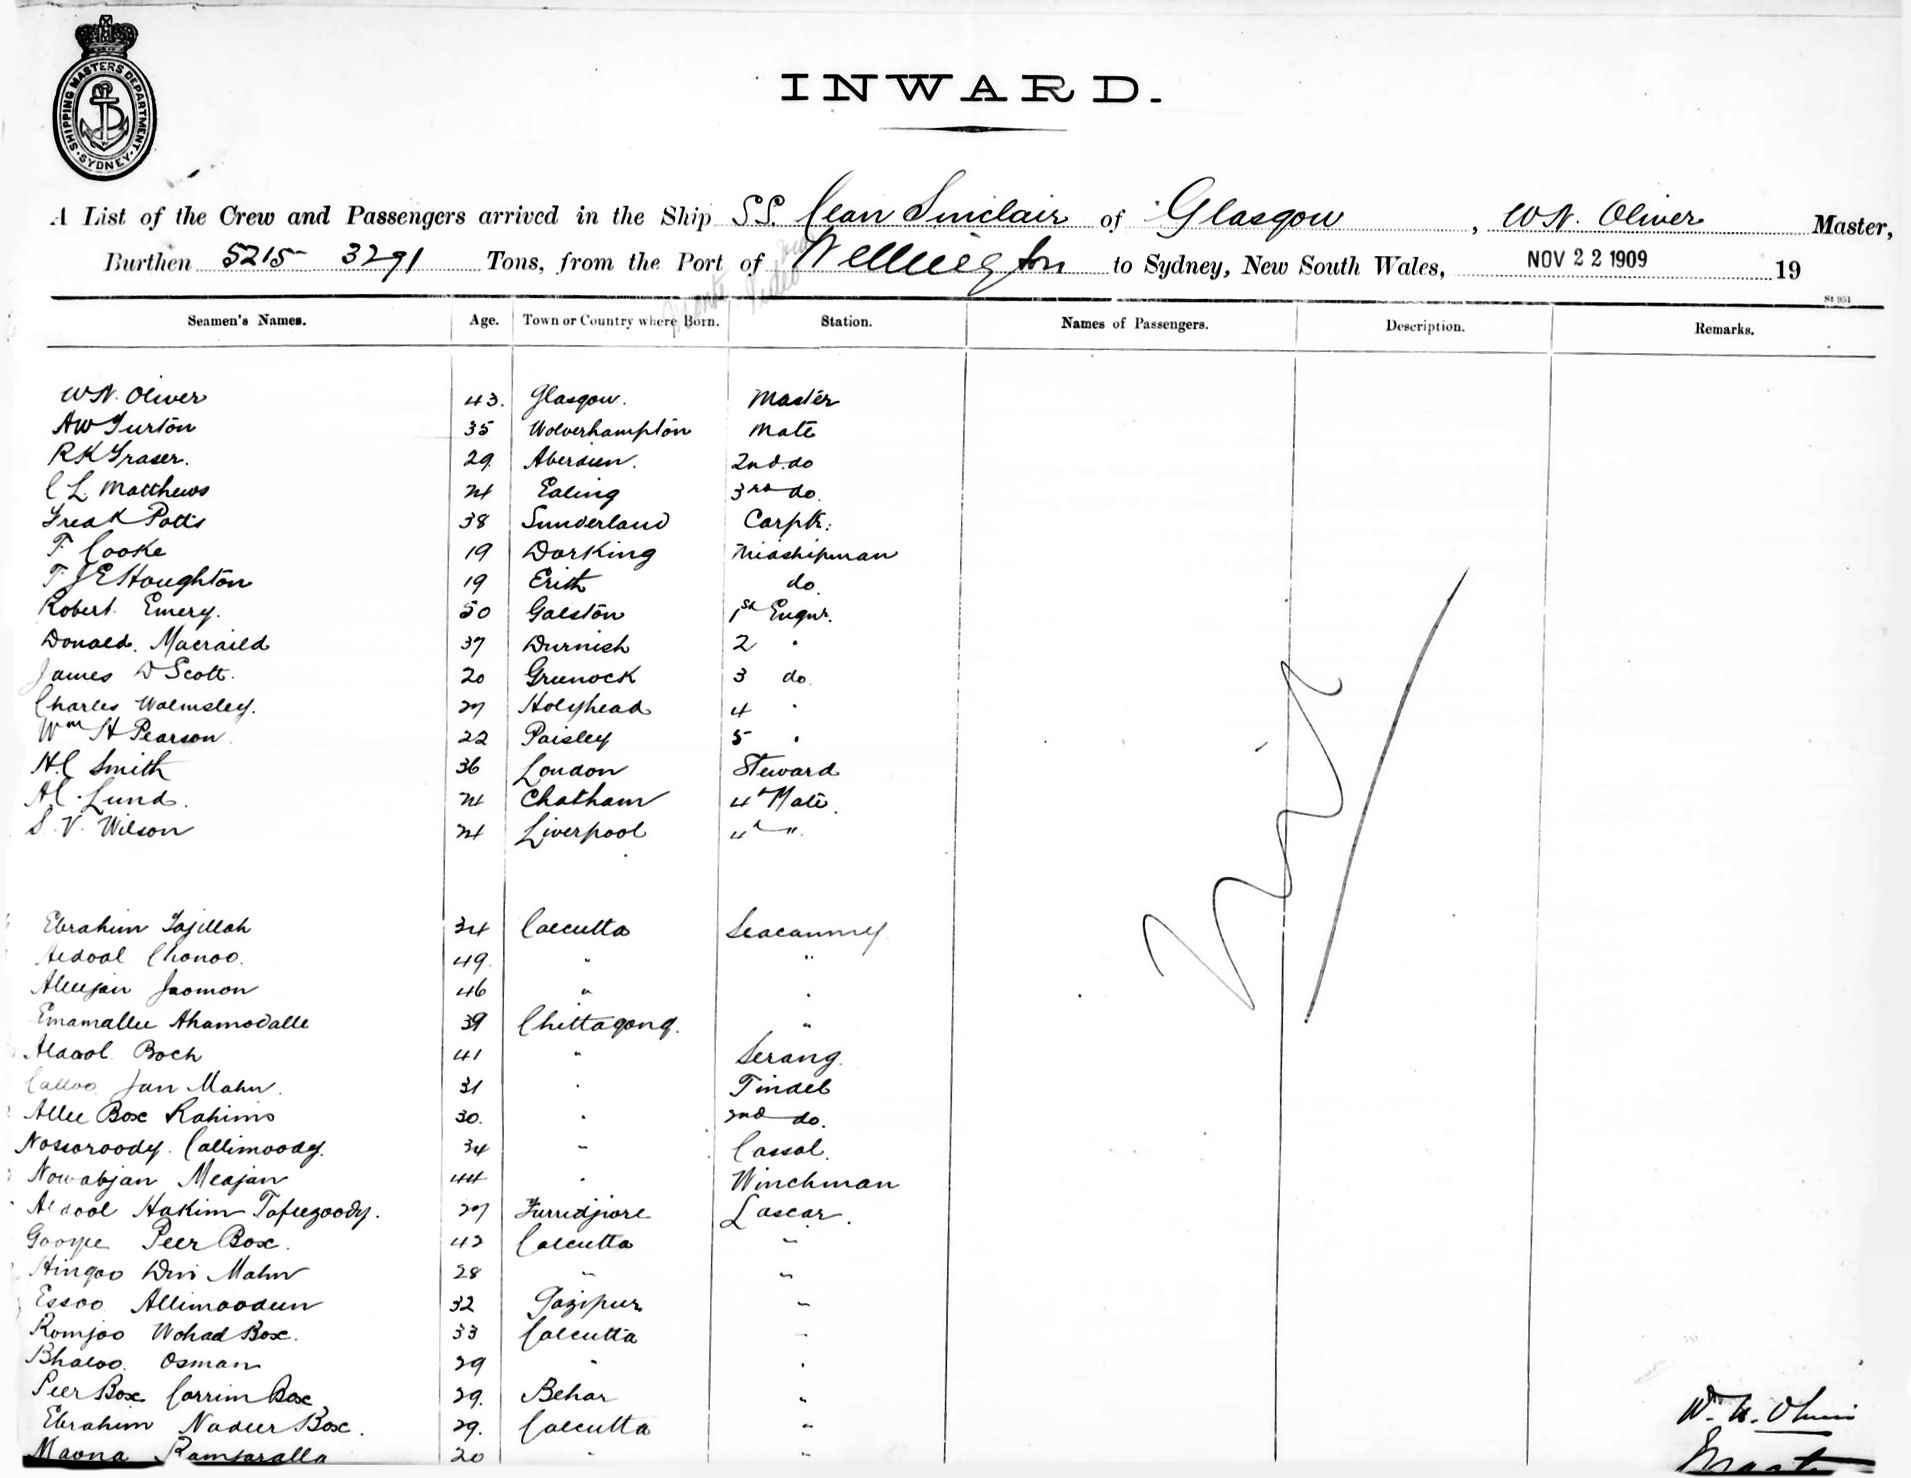 SHIPPING MASTERS DEPARTMENT
SYDNEY
INWARD.
A List of the Crew and Passengers arrived in the Ship SS. Clan Sinclair of Glasgow, WN. Oliver Master,
Burthen 5215 3291 Tons, from the Port of Wellington to Sydney, New South Wales, NOV 22 1909 19
St 951
Seamen's Names. Age. Town or Country where Born. Station. Names of Passengers. Description. Remarks.
WN. Oliver 43. Glasgow. Master
AW Turton 35 Wolverhampton Mate
RK Fraser. 29 Aberdeen. 2nd. do
C L Matthews 24 Ealing 3rd do.
Fred K Potts 38 Sunderland Carptr:
F. Cooke 19 Dorking Midshipman
F. J E Houghton 19 Erith do.
Robert Emery. 50 Galston 1st Engnr.
Donald. Macraild 37 Durnish 2 "
James D Scott. 20 Greenock 3 do.
Charles Walmsley. 27 Holyhead 4 "
Wm H Pearson. 22 Paisley 5 "
H.C Smith 36 London Steward
A C. Lund. 24 Chatham 4th Mate.
S. V. Wilson 24 Liverpool " "
Nil
Ebrahim Tajillah 34 Calcutta Seacunney
Abdool Chonoo. 49. " "
Alleejan Jaomon 46 " "
Emamallee Ahamodalle 39 Chittagong. "
Abdool Boch 41 " Serang.
Calloo Jan Mahn. 31 " Tindel
Allee Box Rahims 30. " 2nd do.
Nossoroody. Callimoody. 34 " Cassab.
Nowabjan Meajan 44 " Winchman
Abdool Hakim Tofeegoody. 27 Furredjiore Lascar.
Peer Box. 42 Calcutta "
Hingoo Din Mahn 28 " "
Essoo Allimoodeen 32 Gazipur "
Romjoo Wohad Box. 33 Calcutta "
Bhaloo. Osman 29 " "
Peer Box Corrim Box 29. Behar "
Ebrahim Nadeer Box. 29. Calcutta "
Maona Ramjaralla 20 " "
W. N. Oliver
Master